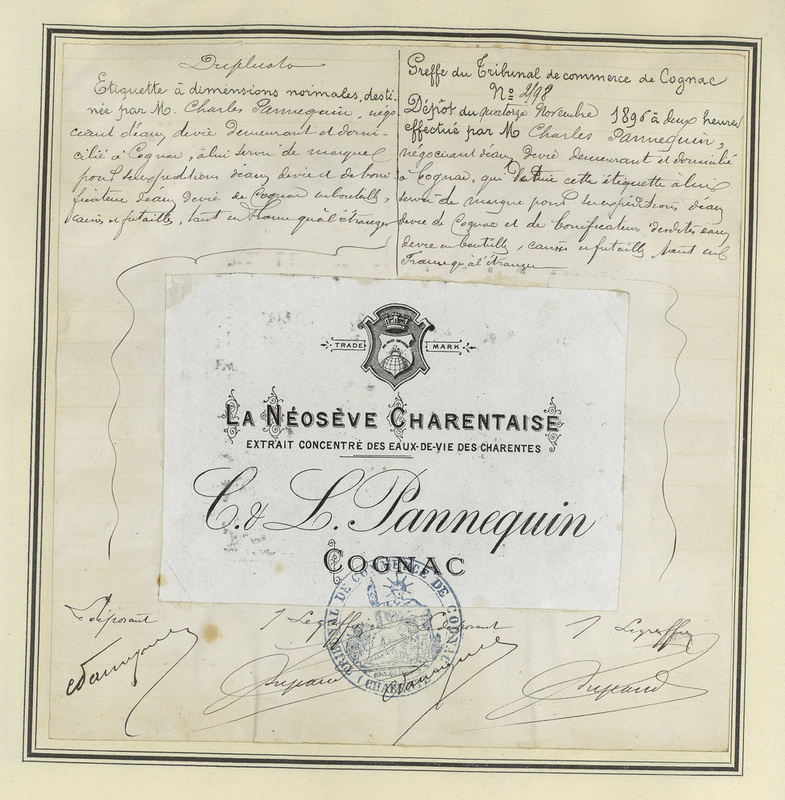 Duplicata
Etiquette à dimensions normales, desti-
née par M. Charles Pannequin, négo
ciant d'eaux devie demeurant et domi-
cilié à Cognac, à lui servir de marque
pour ses expéditions d'eaux devie et de boni
ficateur d'eaux devie de Cognac en bouteilles,
caisses et futailles, tant en France qu'à l'étranger
Greffe du Tribunal de commerce de Cognac
Nº 2198
Dépôt du quatorze Novembre 1896 à deux heures
effectué par M Charles Pannequin,
négociant d'eaux devie demeurant et domicilié
à Cognac, qui destine cette étiquette à lui
servir de marque pour ses expéditions d'eaux
devie de Cognac et de bonificateur desdites eaux
devie en bouteilles, caisses et futailles tant en
France qu'à l'étranger
TRADE MARK
LA NÉOSÈVE CHARENTAISE
EXTRAIT CONCENTRÉ DES EAUX-DE-VIE DES CHARENTES
C. & L. Pannequin
COGNAC
TRIBUNAL DE COMMERCE DE COGNAC
Le déposant Le greffier Le déposant Le greffier